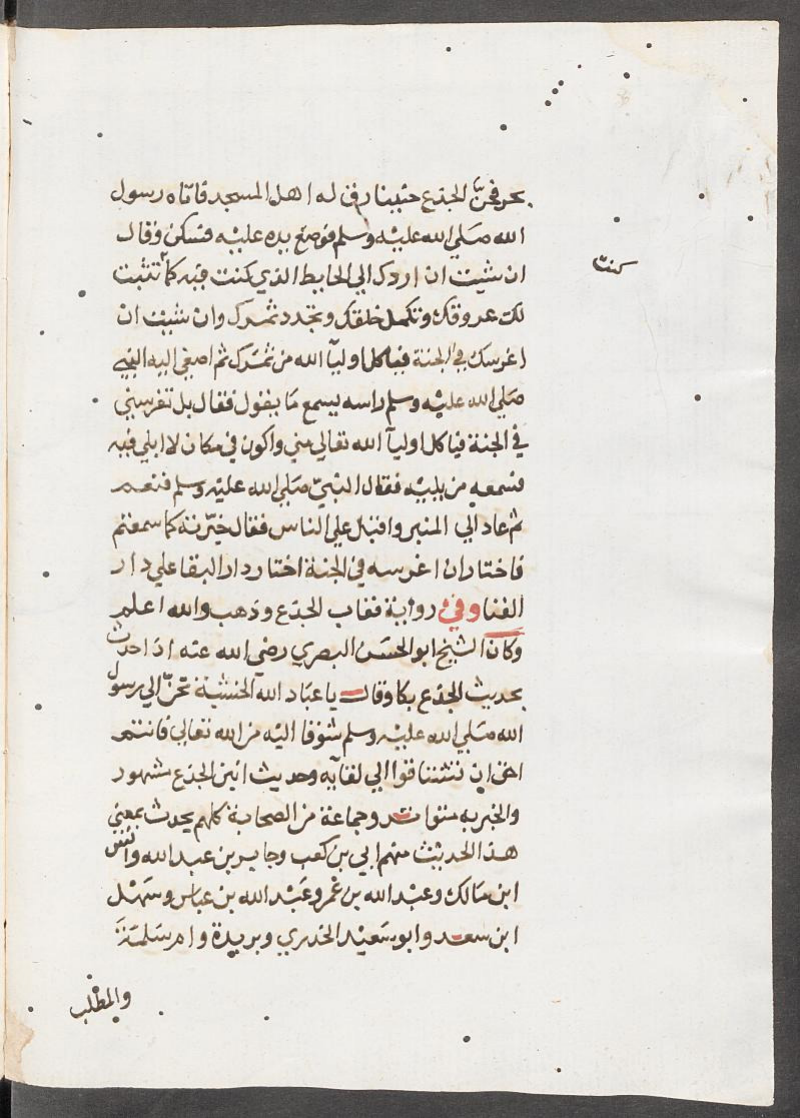 بحر فحنّ الجذع حنينا رق له اهل المسجد فاتاه رسول
الله صلي الله عليه وسلم فوضع يده عليه فسكن وقال
ان شيت ان اردك الي الحايط الذي كنت فيه كما تثبت
كنت
لك عروقك وتكمل خلقك وتجدد ثمرك وان شيت ان
اغرسك في الجنة فياكل اوليآ الله من ثمرك ثم اصغي اليه النبي
صلي الله عليه وسلم راسه يسمع ما يقول فقال بل تغرسني
في الجنة فياكل اوليآ الله تعالي مني واكون في مكان لا ابلي فيه
فسمعه من يليه فقال النبيّ صلي الله عليه وسلم فنعم
ثم عاد الي المنبر واقبل علي الناس فقال خيّرته كما سمعتم
فاختار ان اغرسه في الجنة اختار دار البقا علي دار
الفنا وفي رواية فغاب الجذع وذهب والله اعلم
وكان الشيخ ابو الحسن البصري رضي الله عنه اذا حدث
بحديث الجذع بكا وقال يا عباد الله الخشبة تحنّ الي رسول
الله صلي الله عليه وسلم شوقا اليه من الله تعالي فانتم
احق ان تشتاقوا الي لقآيه وحديث انين الجذع مشهور
والخبر به متواتر وجماعة من الصحابة كلهم يحدث بمعني
هذا الحديث منهم ابي بن كعب وجابر بن عبد الله وانس
ابن مالك وعبد الله بن عمر وعبد الله بن عباس وسهل
ابن سعد وابو سعيد الخدري وبريدة وام سلمة
والمطلب